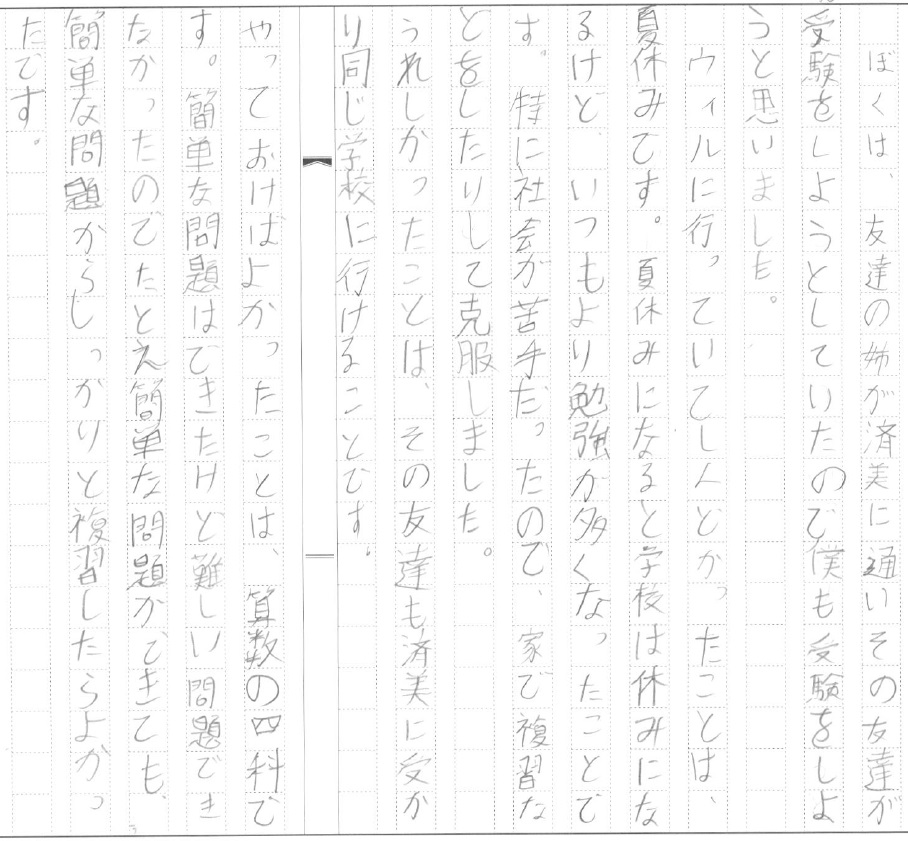 ぼくは、友達の姉が済美に通いその友達が
受験をしようとしていたので僕も受験をしよ
うと思いました。
ウィルに行っていてしんどかったことは、
夏休みです。夏休みになると学校は休みにな
るけど、いつもより勉強が多くなったことで
す。特に社会が苦手だったので、家で複習な
どをしたりして克服しました。
うれしかったことは、その友達も済美に受か
り同じ学校に行けることです。
やっておけばよかったことは、算数の四科で
す。簡単な問題はできたけど難しい問題でき
なかったのでたとえ簡単な問題ができても、
簡単な問題からしっかりと複習したらよかっ
たです。